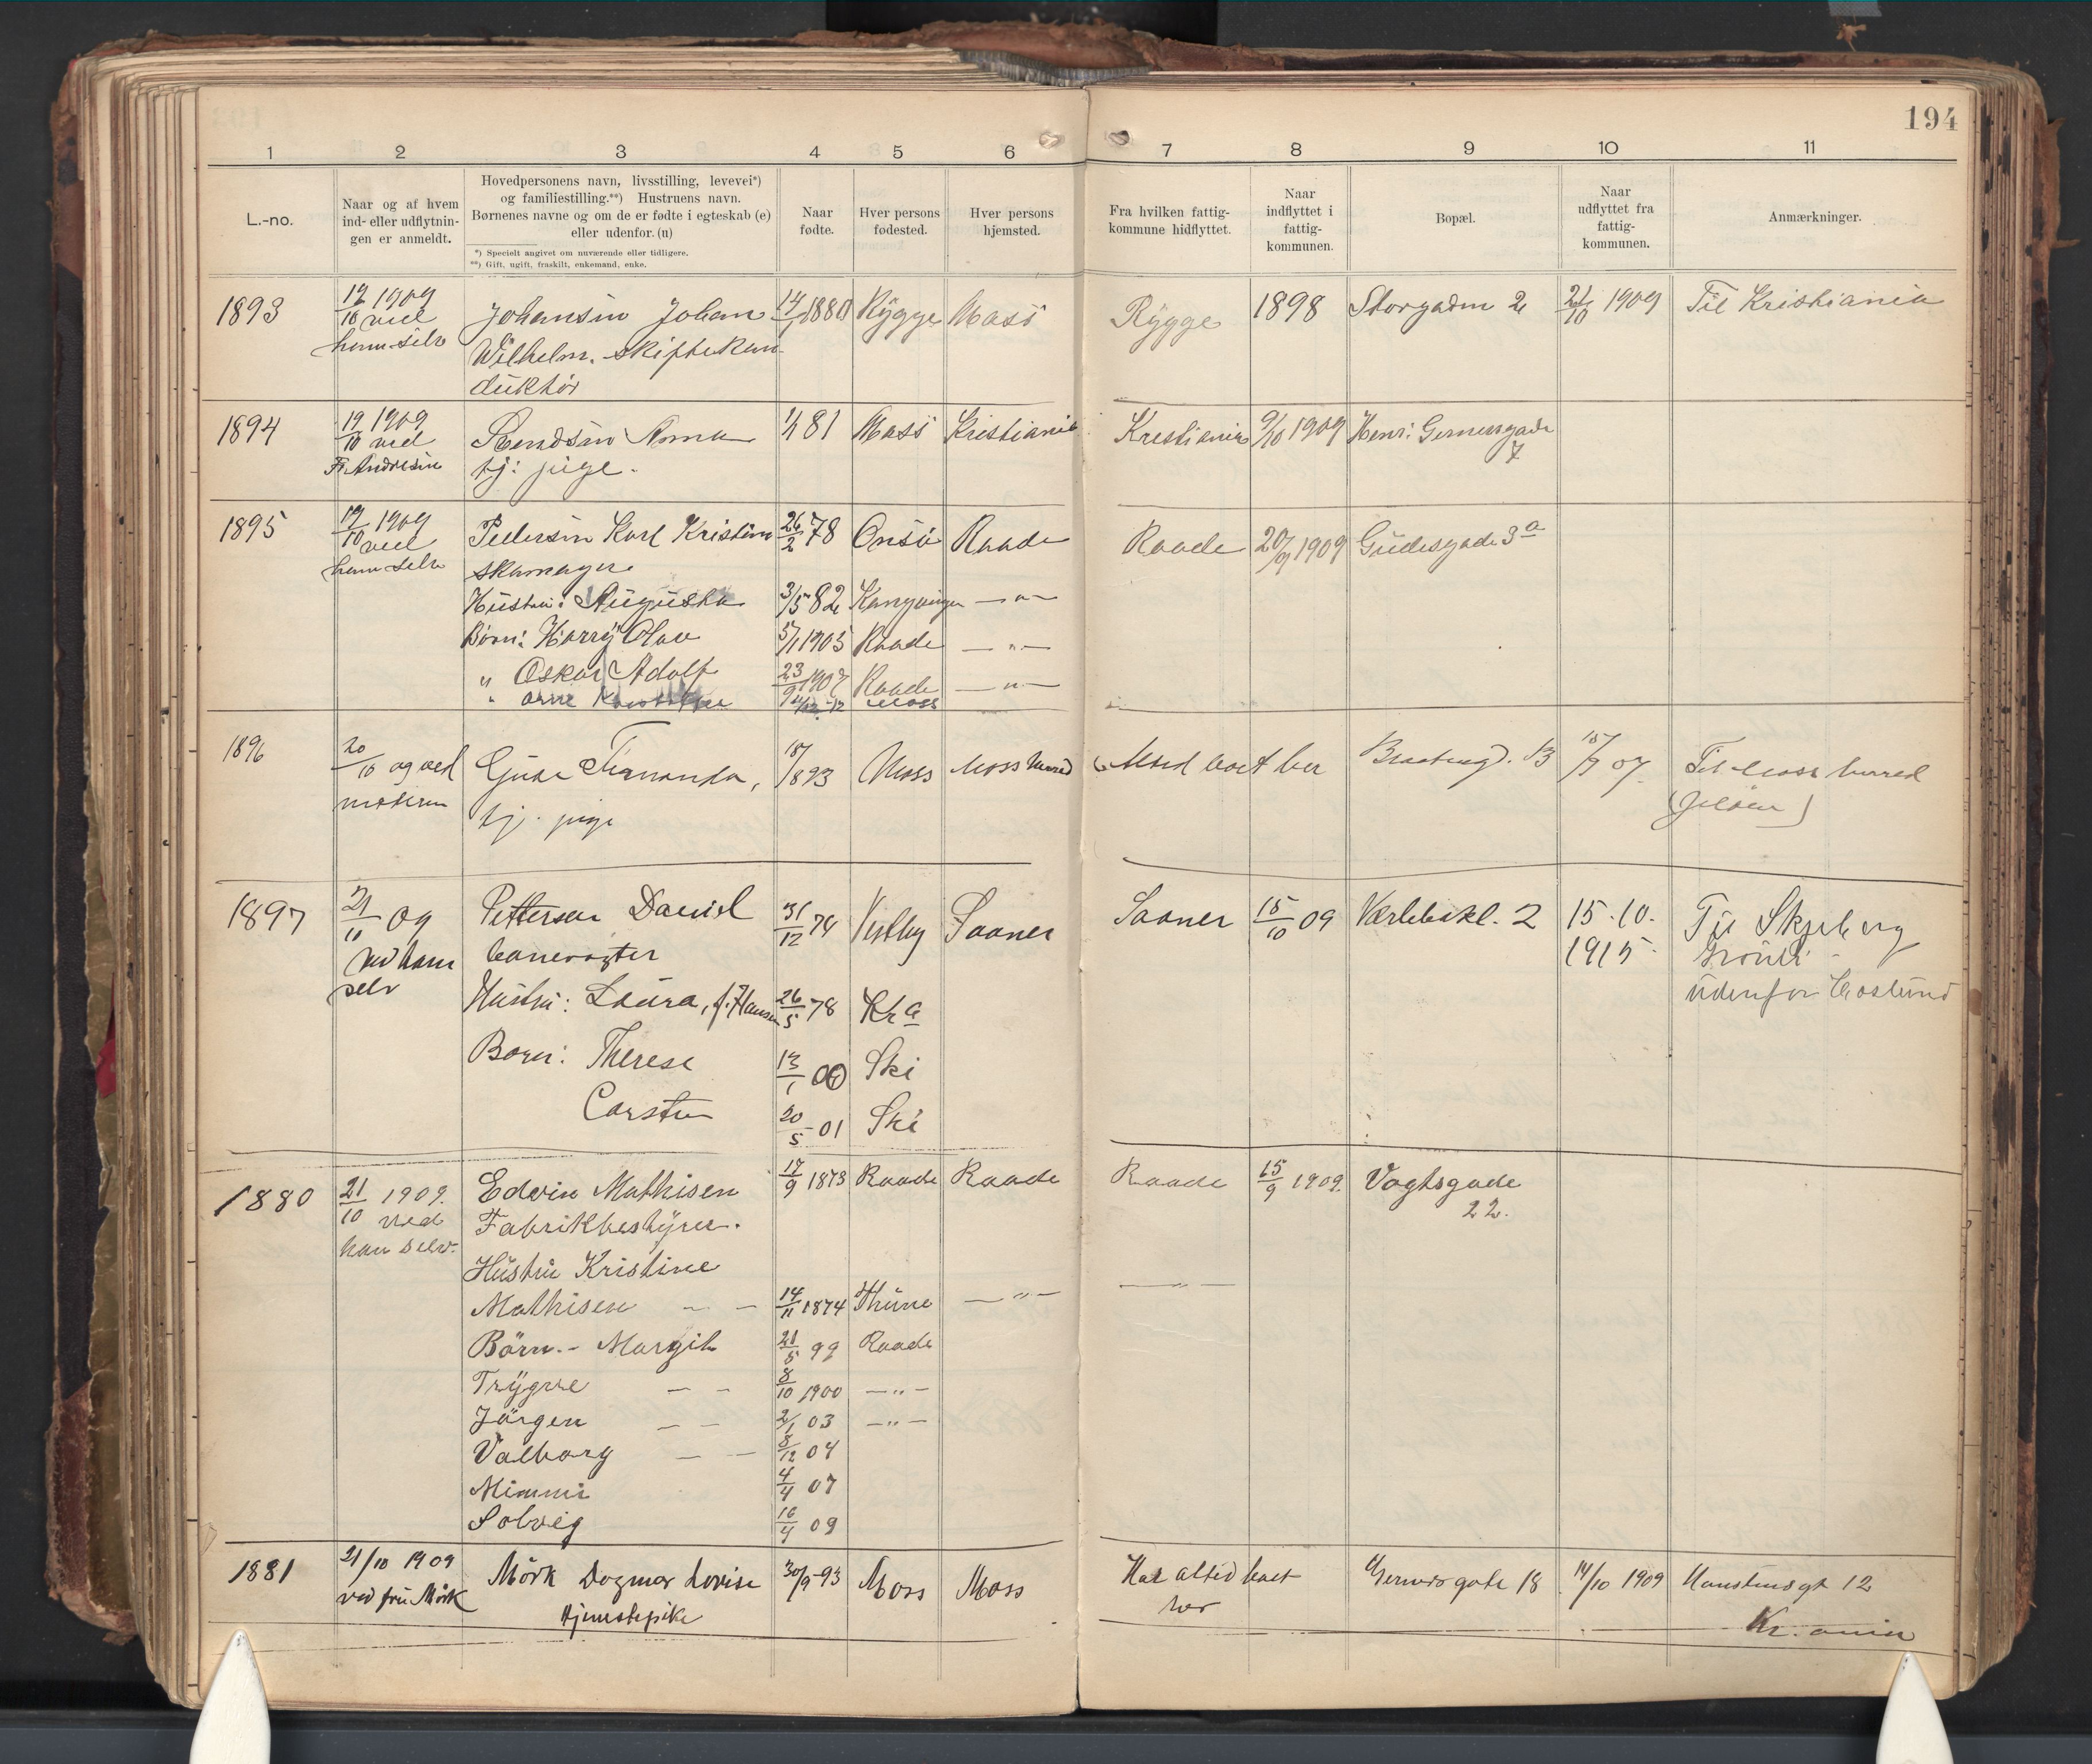 194
1 2 3 4 5 6 7 8 9 10 11
L.-no.
Naar og af hvem
ind- eller udflytnin-
gen er anmeldt.
Hovedpersonens navn, livsstilling, levevei*)
og familiestilling.**) Hustruens navn.
Børnenes navne og om de er fødte i egteskab (e)
eller udenfor. (u)
*) Specielt angivet om nuværende eller tidligere.
**) Gift, ugift, fraskilt, enkemand, enke.
Naar
fødte.
Hver persons
fødested.
Hver persons
hjemsted.
Fra hvilken fattig-
kommune hidflyttet.
Naar
indflyttet i
fattig-
kommunen.
Bopæl.
Naar
udflyttet fra
fattig-
kommunen.
Anmærkninger.
1893 19/10 1909 Johansen Johan 14/1 1880 Rygge Moss Rygge 1898 Storgaden 2 21/10 1909 Til Kristiania
ved
ham selv Wilhelm. skiftekon-
duktør
1894 19/10 1909 Anna 1/1 81 Moss Kristiania Kristiania 9/10 1909 Henr: Gernersgade
ved 7
Fr. Andresen tj: pige.
1895 19/10 1909 Pedersen Karl Kristian 26/2 78 Onsø Raade Raade 20/9 1909 Gudesgade 3a
ved
ham selv skomager
Hustru: Augusta 3/5 82 Kongvinger —"—
Børn: Harry Olav 5/1 1905 Raade —"—
" Oskar Adolf 23/9 1907 Raade —"—
" Arne Moss
1896 20/10 09 ved Gude Fernanda, 18/ 893 Moss Moss herred Altid boet her 13 15/9 09 Til Moss herred
moderen tj. pige (Jeløen)
1897 21/10 09 Pettersen Daniel 31/12 74 Vestby Saaner Saaner 15/10 09 Værlebakl. 2 15.10. Til Skjeberg
ved ham banevogter 1915
selv udenfor
Hustru: Laura, f. Hansen 26/5 78 Kr a
Born: Therese 13/1 00 Ski
Carsten 20/5 -01 Ski
1880 21/10 1909. Edvin Mathisen 17/9 1873 Raade Raade Raade 15/9 1909. Vogtsgade
ved Fabrikbestyrer. 22.
han selv.
Hustru Kristine
Mathisen - - 14/11 1874 Thune —"— —"—
Börn.- Margit 21/5 99 Raade
Trygve - - 8/10 1900 —"—
Jörgen - - 2/1 03 —"—
Valborg - - 8/12 04
Mimmi 4/4 07
Solveig 16/4 09
1881 21/10 1909 Mörk Dagmar Lovise 30/9-93 Moss Moss Har altid boet Gernersgate 18 14/10 1909 12
ved fru Mörk tjenestepike her Kr.ania